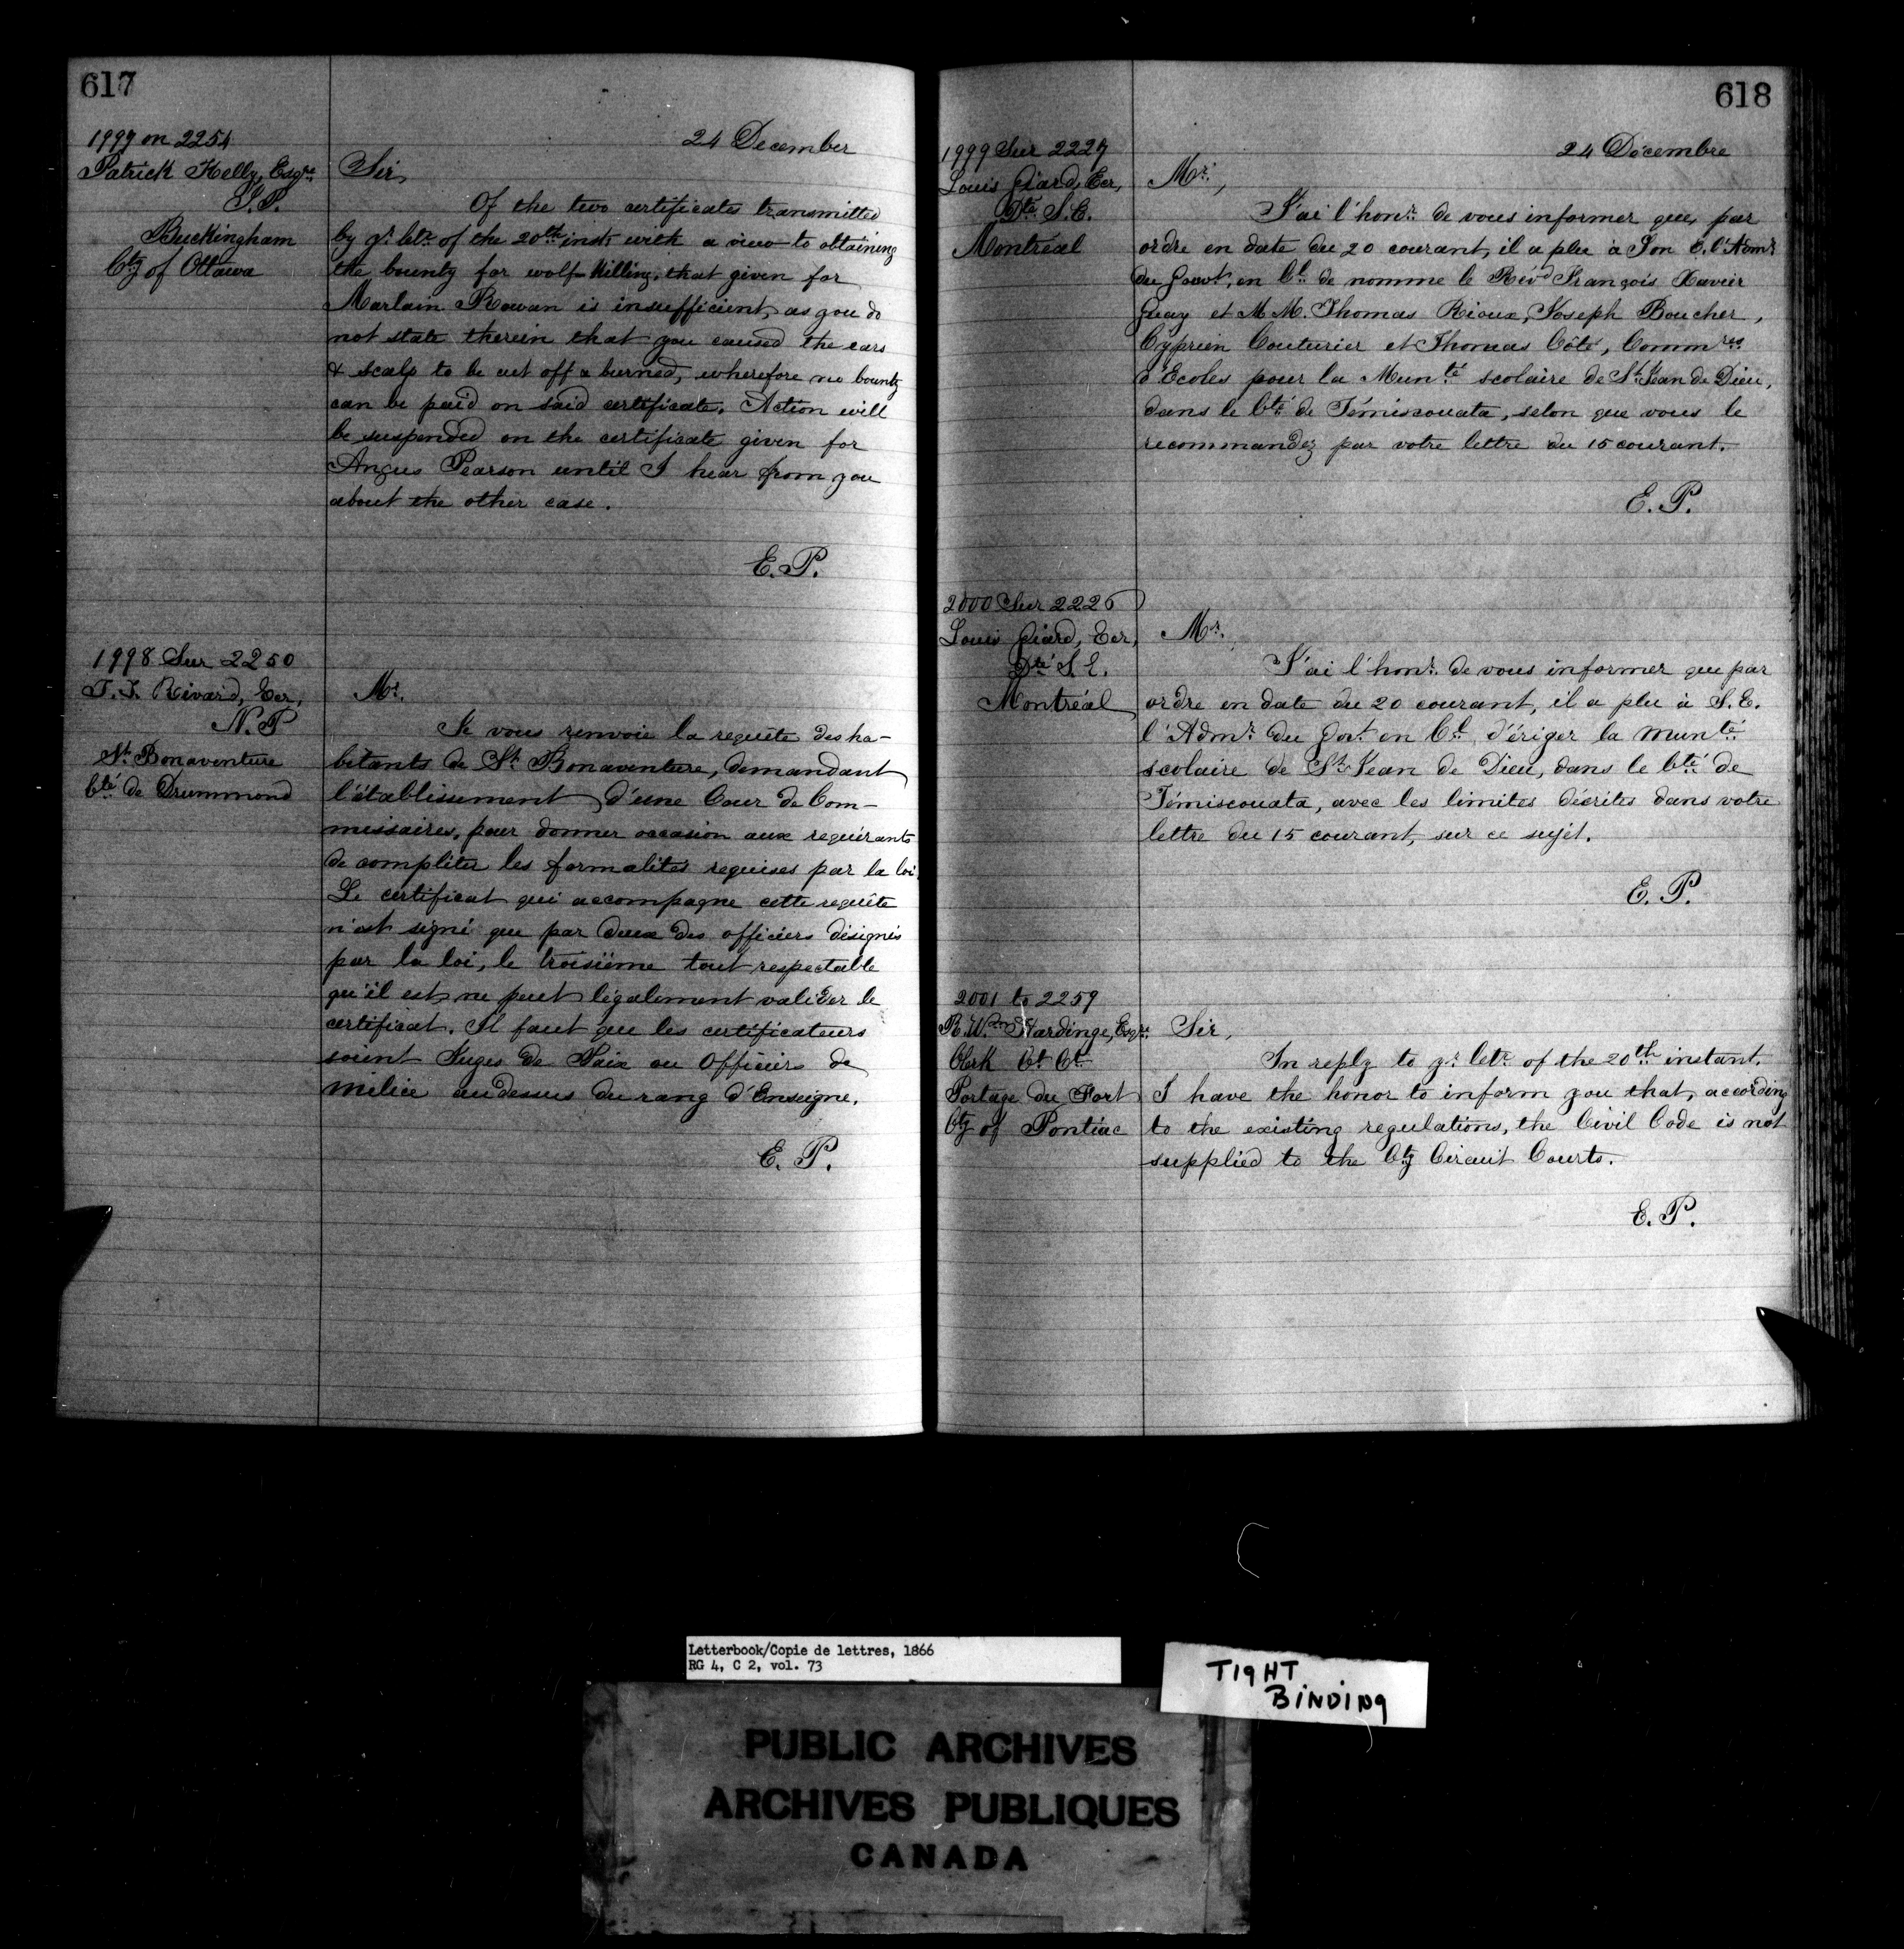 617
24 December
1997 on 2254
Patrick Kelly, Esqre.
J.P.
Buckingham
Cty of Ottawa
Sir,
Of the two certificates transmitted
by yr. letr. of the 20th inst, with a view to obtaining
the bounty for wolf killing, that given for
Marlain Rowan is insufficient, as you do
not state therein that you caused the ears
& scalp to be cut off & burned, wherefore no bounty
can be paid on said certificate. Action will
be suspended on the certificate given for
Angus Pearson until I hear from you
about the other case.
E. P.
1998 Sur 2250
Rivard, Ecr,
N. P
St. Bonaventure
Cté de Drummond
Mr.
Je vous renvoie la requête des ha-
bitants de St. Bonaventure, demandant
l'établissement d'une Cour de Com-
missaires, pour donner occasion aux requérants
de compléter les formalités requises par la loi.
Le certificat qui accompagne cette requête
n'est signé que par deux des officiers désignés
par la loi, le troisième tout respectable
qu'il est, ne peut légalement valider le
certificat. Il faut que les certificateurs
soient Juges de Paix ou Officiers de
milice au dessus du rang d'Enseigne.
E. P.
618
24 Décembre
1999 Sur 2227
Louis Giard, Ecr,
Dté S. E.
Montréal
Mr.,
J'ai l'honr. de vous informer que, par
ordre en date du 20 courant, il a plu à Son E. l'Admr.
du Gouvt, en Cl. de nomme le Révd François Xavier
Guay et M M. Thomas Rioux, Joseph Boucher,
Cyprien Couturier et Thomas Côté, Commres
d'Ecoles pour la Munté scolaire de St. Jean de Dieu,
dans le Cté de Témiscouata, selon que vous le
recommandez par votre lettre du 15 courant.
E. P.
2000 Sur 2226
Louis Giard, Ecr,
Dté S. E.
Montréal
Mr.
J'ai l'honr. de vous informer que par
ordre en date du 20 courant, il a plu à S. E.
l'Admr. du Govt. en Cl. d'ériger la munté
scolaire de St. Jean de Dieu, dans le Cté de
Témiscouata, avec les limites décrites dans votre
lettre du 15 courant, sur ce sujet.
E. P.
2001 to 2259
R. Wm. Hardinge, Esqre.
Clerk Ct. Ct.
Portage du Fort
Cty of Pontiac
Sir,
In reply to yr. letr. of the 20th instant,
I have the honor to inform you that, according
to the existing regulations, the Civil Code is not
supplied to the Cty Circuit Courts.
E. P.
Letterbook/Copie de lettres, 1866
RG 4, C 2, vol. 73
TIGHT
BINDING
PUBLIC ARCHIVES
ARCHIVES PUBLIQUES
CANADA